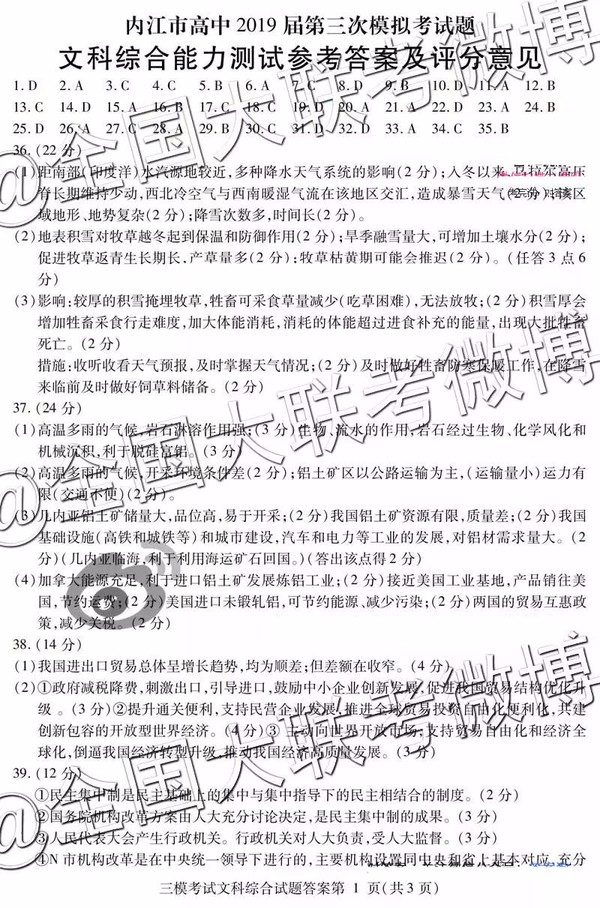 内江市高中 2019 届第三次模拟考试题
文科综合能力测试参考答案及评分意见
1. D 2. A 3. C 4. C 5. C 6. A 7. D 8. D 9. B 10. D 11. A 12. B
13. C 14. D 15. A 16. B 17. C 18. C 19. D 20. A 21. A 22. D 23. A 24. B
25. D 26. A 27. C 28. A 29. B 30. C 31. D 32. C 33. A 34. C 35. B
36. (22 分)
(1)距南部(印度洋)水汽源地较近,多种降水天气系统的影响(2 分);人冬以来
脊长期维持少动,西北冷空气与西南暖湿气流在该地区交汇,造成暴雪天气(2 分);该区
域地形、地势复杂(2 分);降雪次数多,时间长(2 分)。
(2)地表积雪对牧草越冬起到保温和防御作用(2 分);旱季融雪量大,可增加土壤水分(2 分);
促进牧草返青生长期长,产草量多(2 分);牧草枯黄期可能会推迟(2 分)。(任答 3 点 6
分)
(3)影响:较厚的积雪掩埋牧草,牲畜可采食草量减少(吃草困难),无法放牧;(2 分)积雪厚会
增加牲畜采食行走难度,加大体能消耗,消耗的体能超过进食补充的能量,出现大批牲畜
死亡。(2 分)
措施:收听收看天气预报,及时掌握天气情况;(2 分)及时做好牲畜防寒保暖工作,在降雪
来临前及时做好饲草料储备。(2 分)
37. (24 分)
(1)高温多雨的气候,岩石淋溶作用强;(3 分)生物、流水的作用,岩石经过生物、化学风化和
机械沉积,利于脱硅富铝。(3 分)
(2)高温多雨的气候,开采环境条件差(2 分);铝土矿区以公路运输为主,(运输量小)运力有
限(交通不便)(2 分)。
(3)几内亚铝土矿储量大,品位高,易于开采;(2 分)我国铝土矿资源有限,质量差;(2 分)我国
基础设施(高铁和城铁等)和城市建设,汽车和电力等工业的发展,对铝材需求量大。(2
分)(几内亚临海,利于利用海运矿石回国。)(答出该点得 2 分)
(4)加拿大能源充足,利于进口铝土矿发展炼铝工业;(2 分)接近美国工业基地,产品销往美
国,节约运费;(2 分)美国进口未锻轧铝,可节约能源、减少污染;(2 分)两国的贸易互惠政
策,减少关税。(2 分)
38. (14 分)
(1)我国进出口贸易总体呈增长趋势,均为顺差;但差额在收窄。(4 分)
(2)①政府减税降费,刺激出口,引导进口,鼓励中小企业创新发展,促进我国贸易结构优化升
级 。(3 分)②提升通关便利,支持民营企业发展,推进全球贸易投资自由化便利化,共建
创新包容的开放型世界经济。(4 分)③主动向世界开放市场,支持贸易自由化和经济全
球化,倒逼我国经济转型升级,推动我国经济高质量发展。(3 分)
39. (12 分)
①民主集中制是民主基础上的集中与集中指导下的民主相结合的制度。(2 分)
②国务院机构改革方案由人大充分讨论决定,是民主集中制的成果。(2 分)
③人民代表大会产生行政机关。行政机关对人大负责,受人大监督。(2 分)
④N 市机构改革是在中央统一领导下进行的,主要机构设置同中央和省上基本对应,充分
三模考试文科综合试题答案第 1 页(共 3 页)
@全国大联考微博
@全国大联考微博
@全国大联考微博